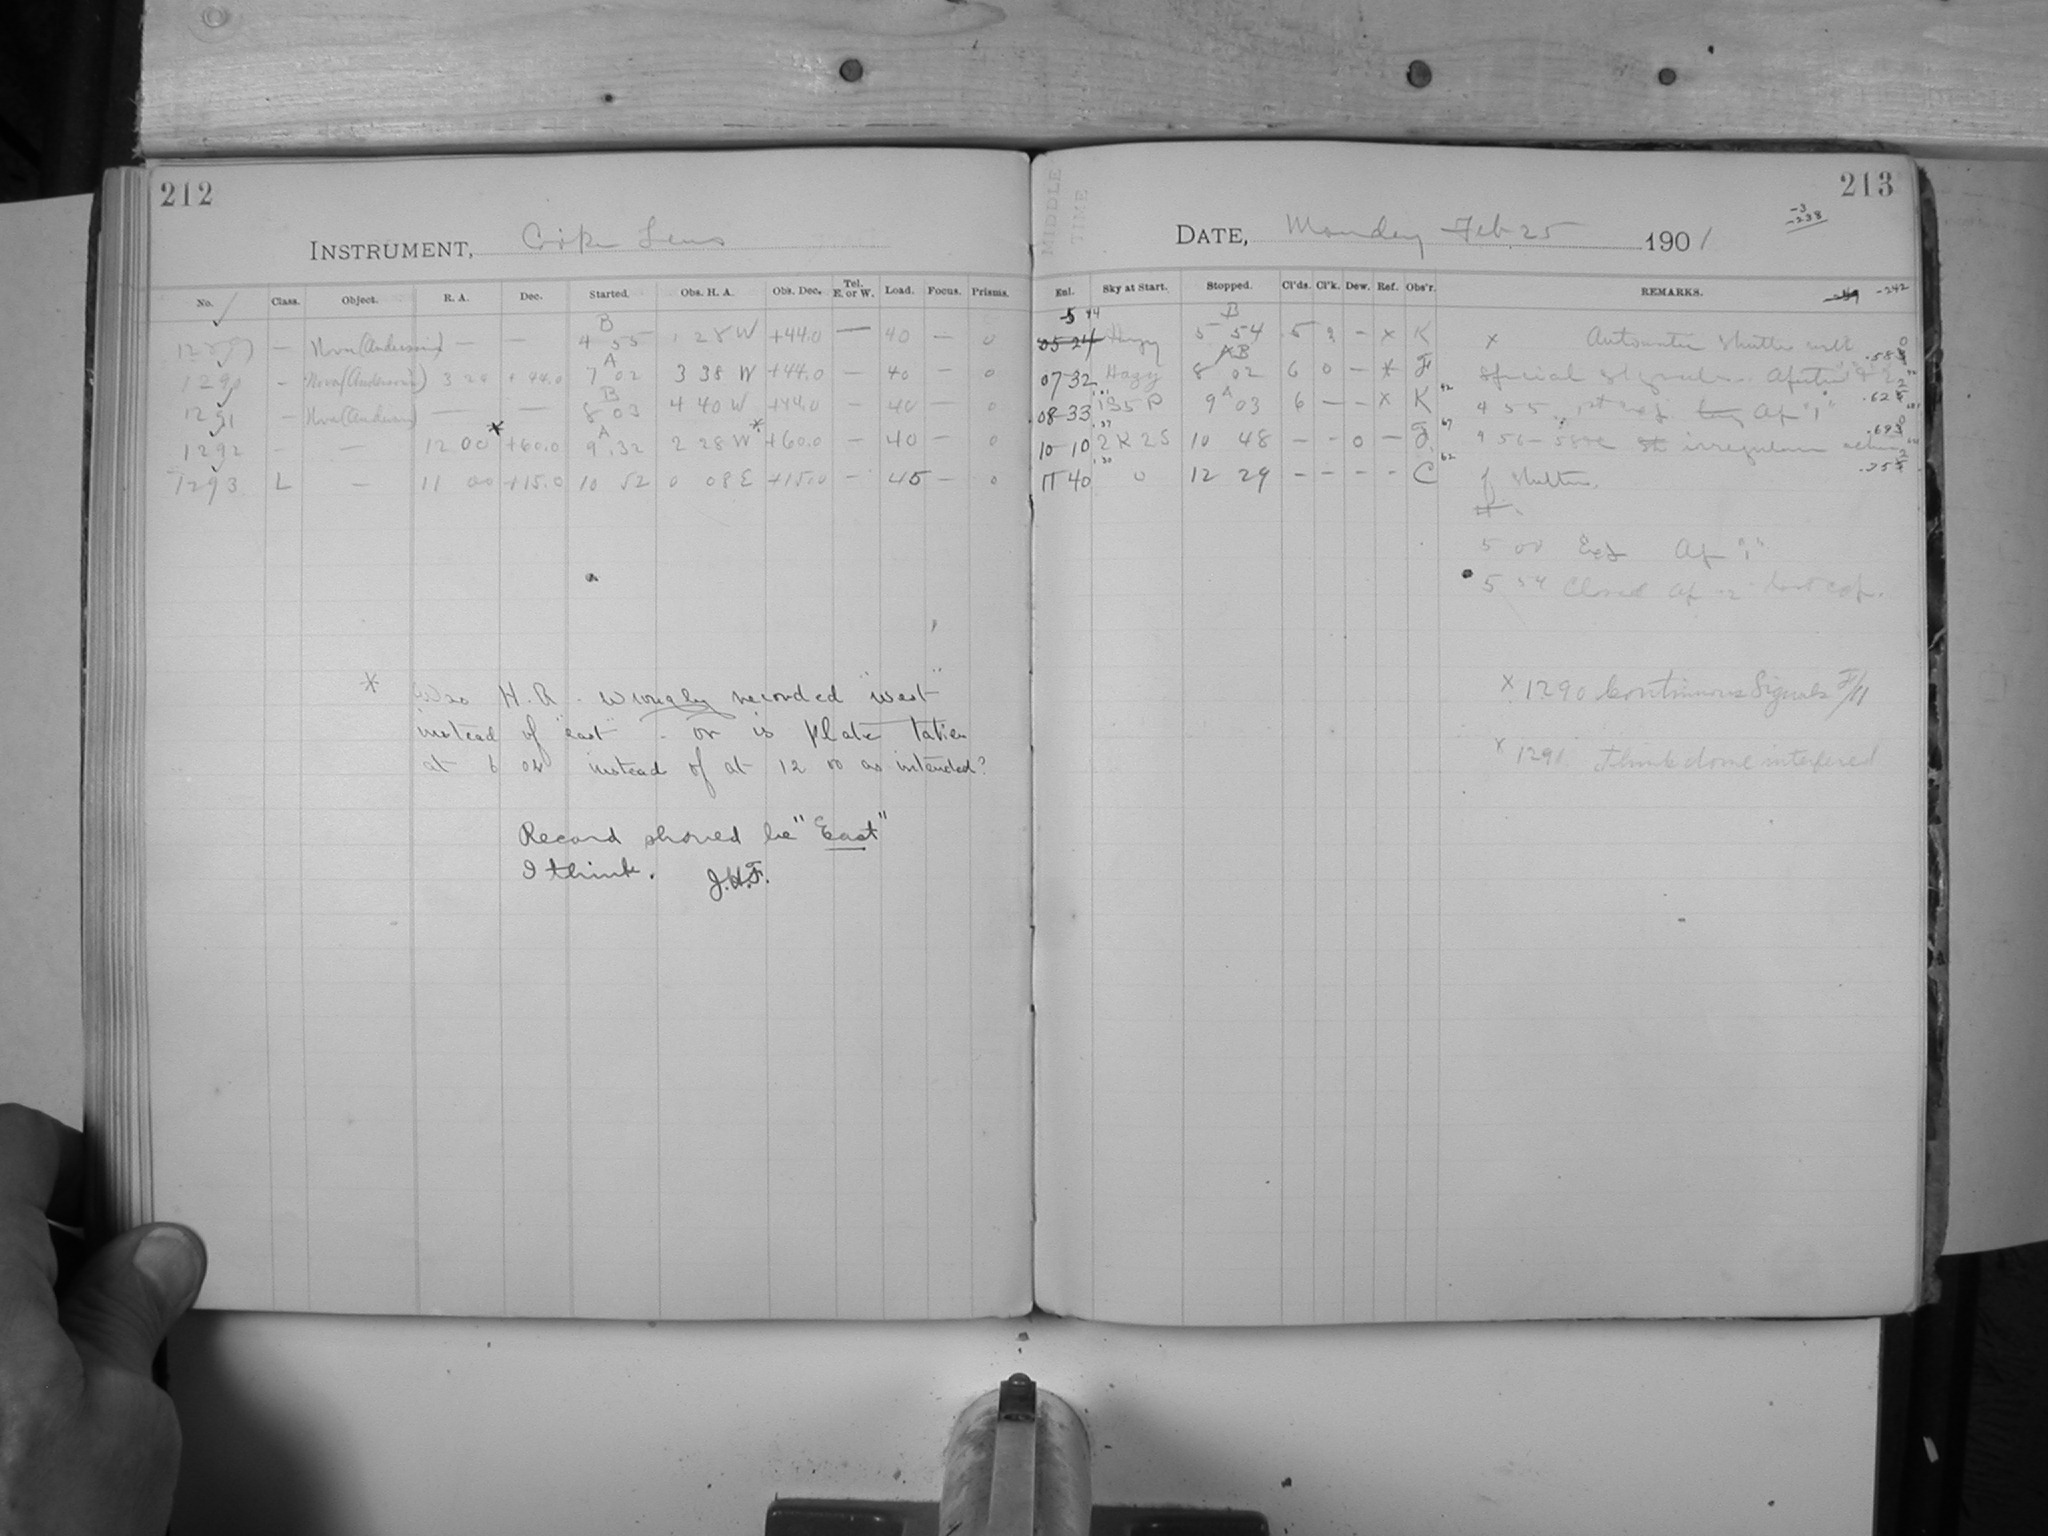 212
INSTRUMENT, Cooke Lens
No. Class. Object. R. A. Dec. Started. Obs. H. A. Obs. Dec. Tel. E. or W. Load. Focus. Prisms.
1289 — Nova (Anderson's) — — B 4 55 1 28 W +44.0 — 40 — 0
1290 — Nova (Anderson's) 3 24 +44.0 A 7 02 3 38 W +44.0 — 40 — 0
1291 — Nova (Anderson) — — B 8 03 4 40 W +44.0 — 40 — 0
1292 - — 12 00 * +60.0 A 9.32 2 28 W * +60.0 — 40 — 0
1293 L — 11 00 +15.0 10 52 0 08 E +15.0 — 45 — 0
* Was H. A. wrongly recorded "west"
instead of "east" - or is plate taken
at 6 instead of at 12 00 as intended?
Record should be "East"
I think. J.H.F.
MIDDLE TIME
213
DATE, Monday Feb 25 1901
-3
-238
Enl. Sky at Start. Stopped. Cl'ds. Cl'k. Dew. Ref. Obs'r. REMARKS. -242
5 44
05 24 Hazy B 5 54 5 - x K x Automatic shutter with
07-32 Hazy AB 8 02 6 0 — * F Special signals. Aperture
08-33 135 P A 9 03 6 — — x K 4 55 1st exp. Ap "1"
10-10 2 K 2 S 10 48 - - 0 — F. irregular action
11 40 0 12 29 - - - - C of shutter.
5 00 Exp Ap "1"
5 54 Closed Ap 2 cap.
x 1290 Continuous Signals F/11
x 1291. Think dome interfered